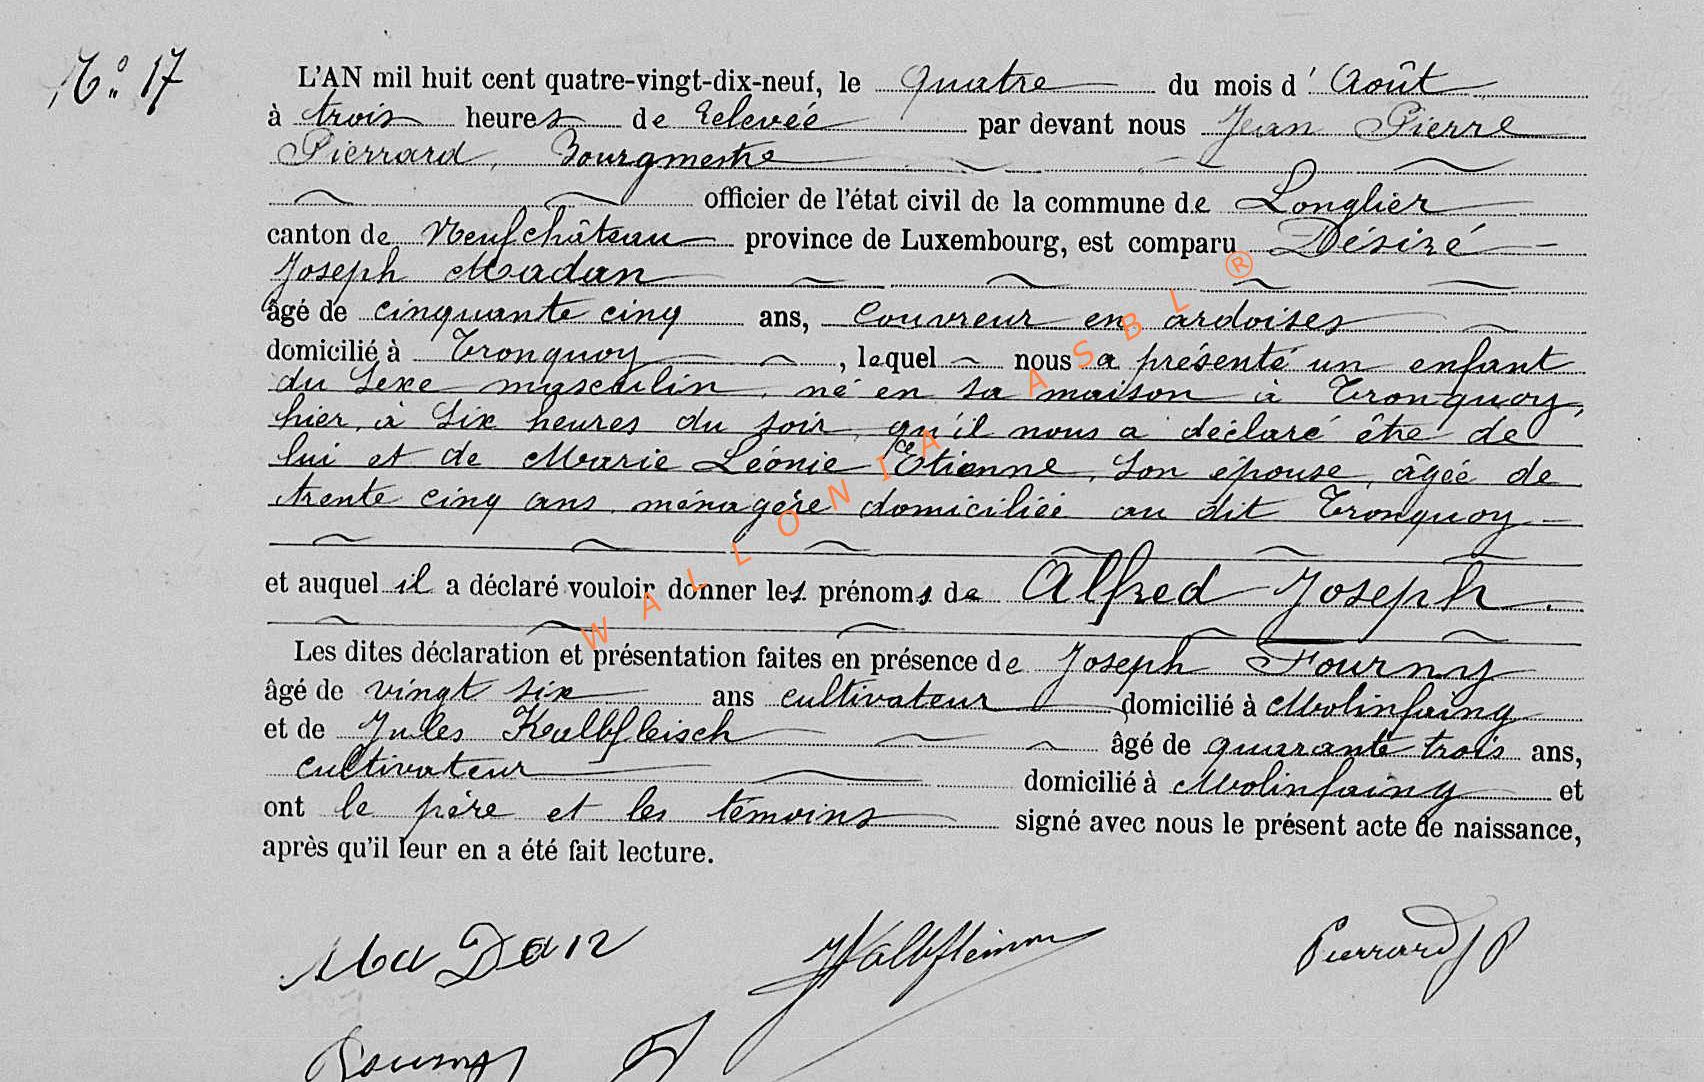 N° 17
L'AN mil huit cent quatre-vingt-dix-neuf, le quatre du mois d'Août
à trois heures de relevée par devant nous Jean Pierre
Pierrard, Bourgmestre
officier de l'état civil de la commune de Longlier
canton de Neufchâteau province de Luxembourg, est comparu Désiré
Joseph Madan
âgé de cinquante cinq ans, couvreur en ardoises
domicilié à Tronquoy, lequel nous a présenté un enfant
du sexe masculin, né en sa maison à Tronquoy,
hier, à six heures du soir, qu'il nous a déclaré être de
lui et de Marie Léonie Etienne, son épouse, âgée de
trente cinq ans, ménagère domiciliée au dit Tronquoy
et auquel il a déclaré vouloir donner les prénoms de Alfred Joseph.
Les dites déclaration et présentation faites en présence de Joseph Fourny
âgé de vingt six ans cultivateur domicilié à Molinfaing
et de Jules Kalbfleisch âgé de quarante trois ans,
cultivateur domicilié à Molinfaing et
ont le père et les témoins signé avec nous le présent acte de naissance,
après qu'il leur en a été fait lecture.
MaDan Pierrard JP
Fourny J
WALLONIA ASBL ®